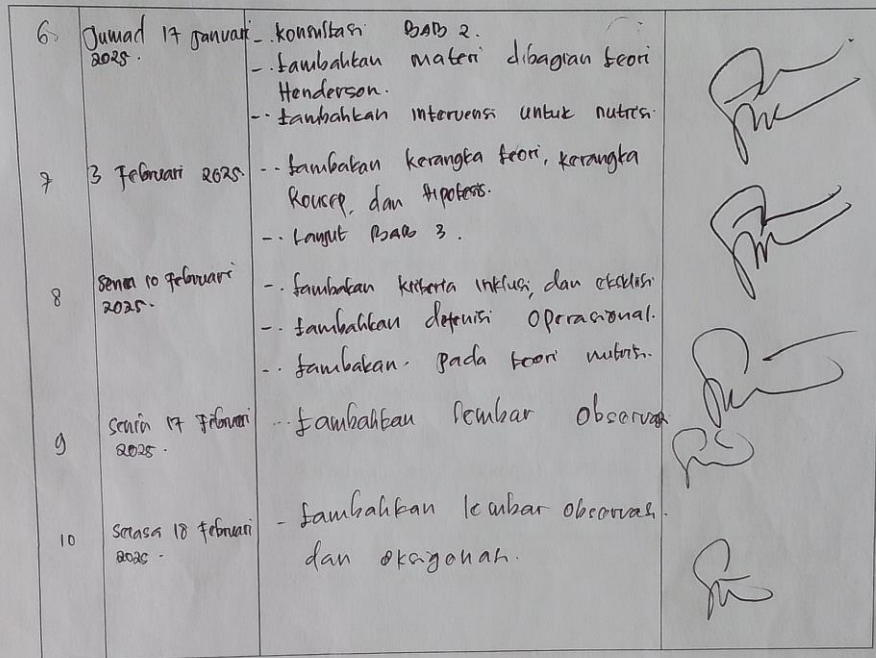 6. Jumad 17 Januari - konsultasi BAB 2.
2025. - tambahkan materi dibagian teori
Henderson.
- tambahkan intervensi untuk nutrisi.
7 3 Februari 2025. - tambakan kerangka teori, kerangka
Konsep, dan Hipotesis.
- Lanjut BAB 3.
8 Senin 10 Februari - tambakan kriteria inklusi, dan eksklusi
2025. - tambahkan defenisi Operasional.
- tambakan pada teori nutrisi.
9 Senin 17 Februari - tambahkan lembar Observasi
2025.
10 Selasa 18 Februari - tambahkan lembar observasi.
2025. dan oksigenasi.